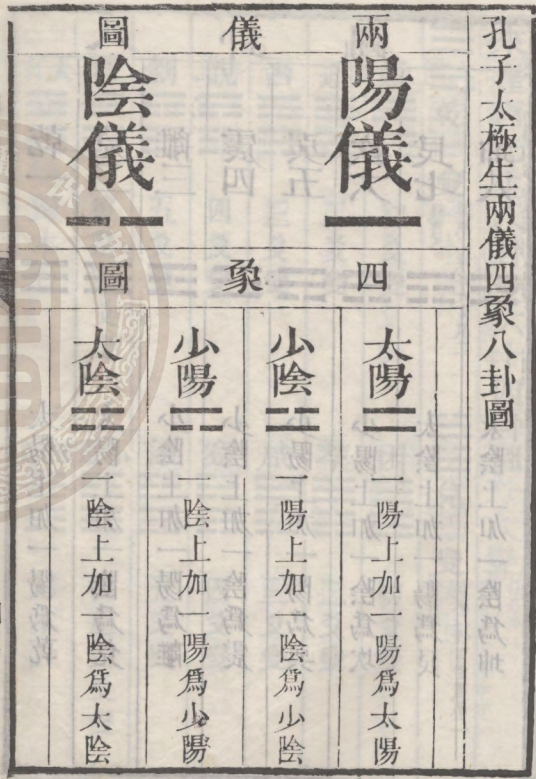 孔子太極生兩儀四象八卦圖
兩儀圖
陽儀
陰儀
四象圖
太陽
一陽上加一陽爲太陽
少陰
一陽上加一陰爲少陰
少陽
一陰上加一陽爲少陽
太陰
一陰上加一陰爲太陰